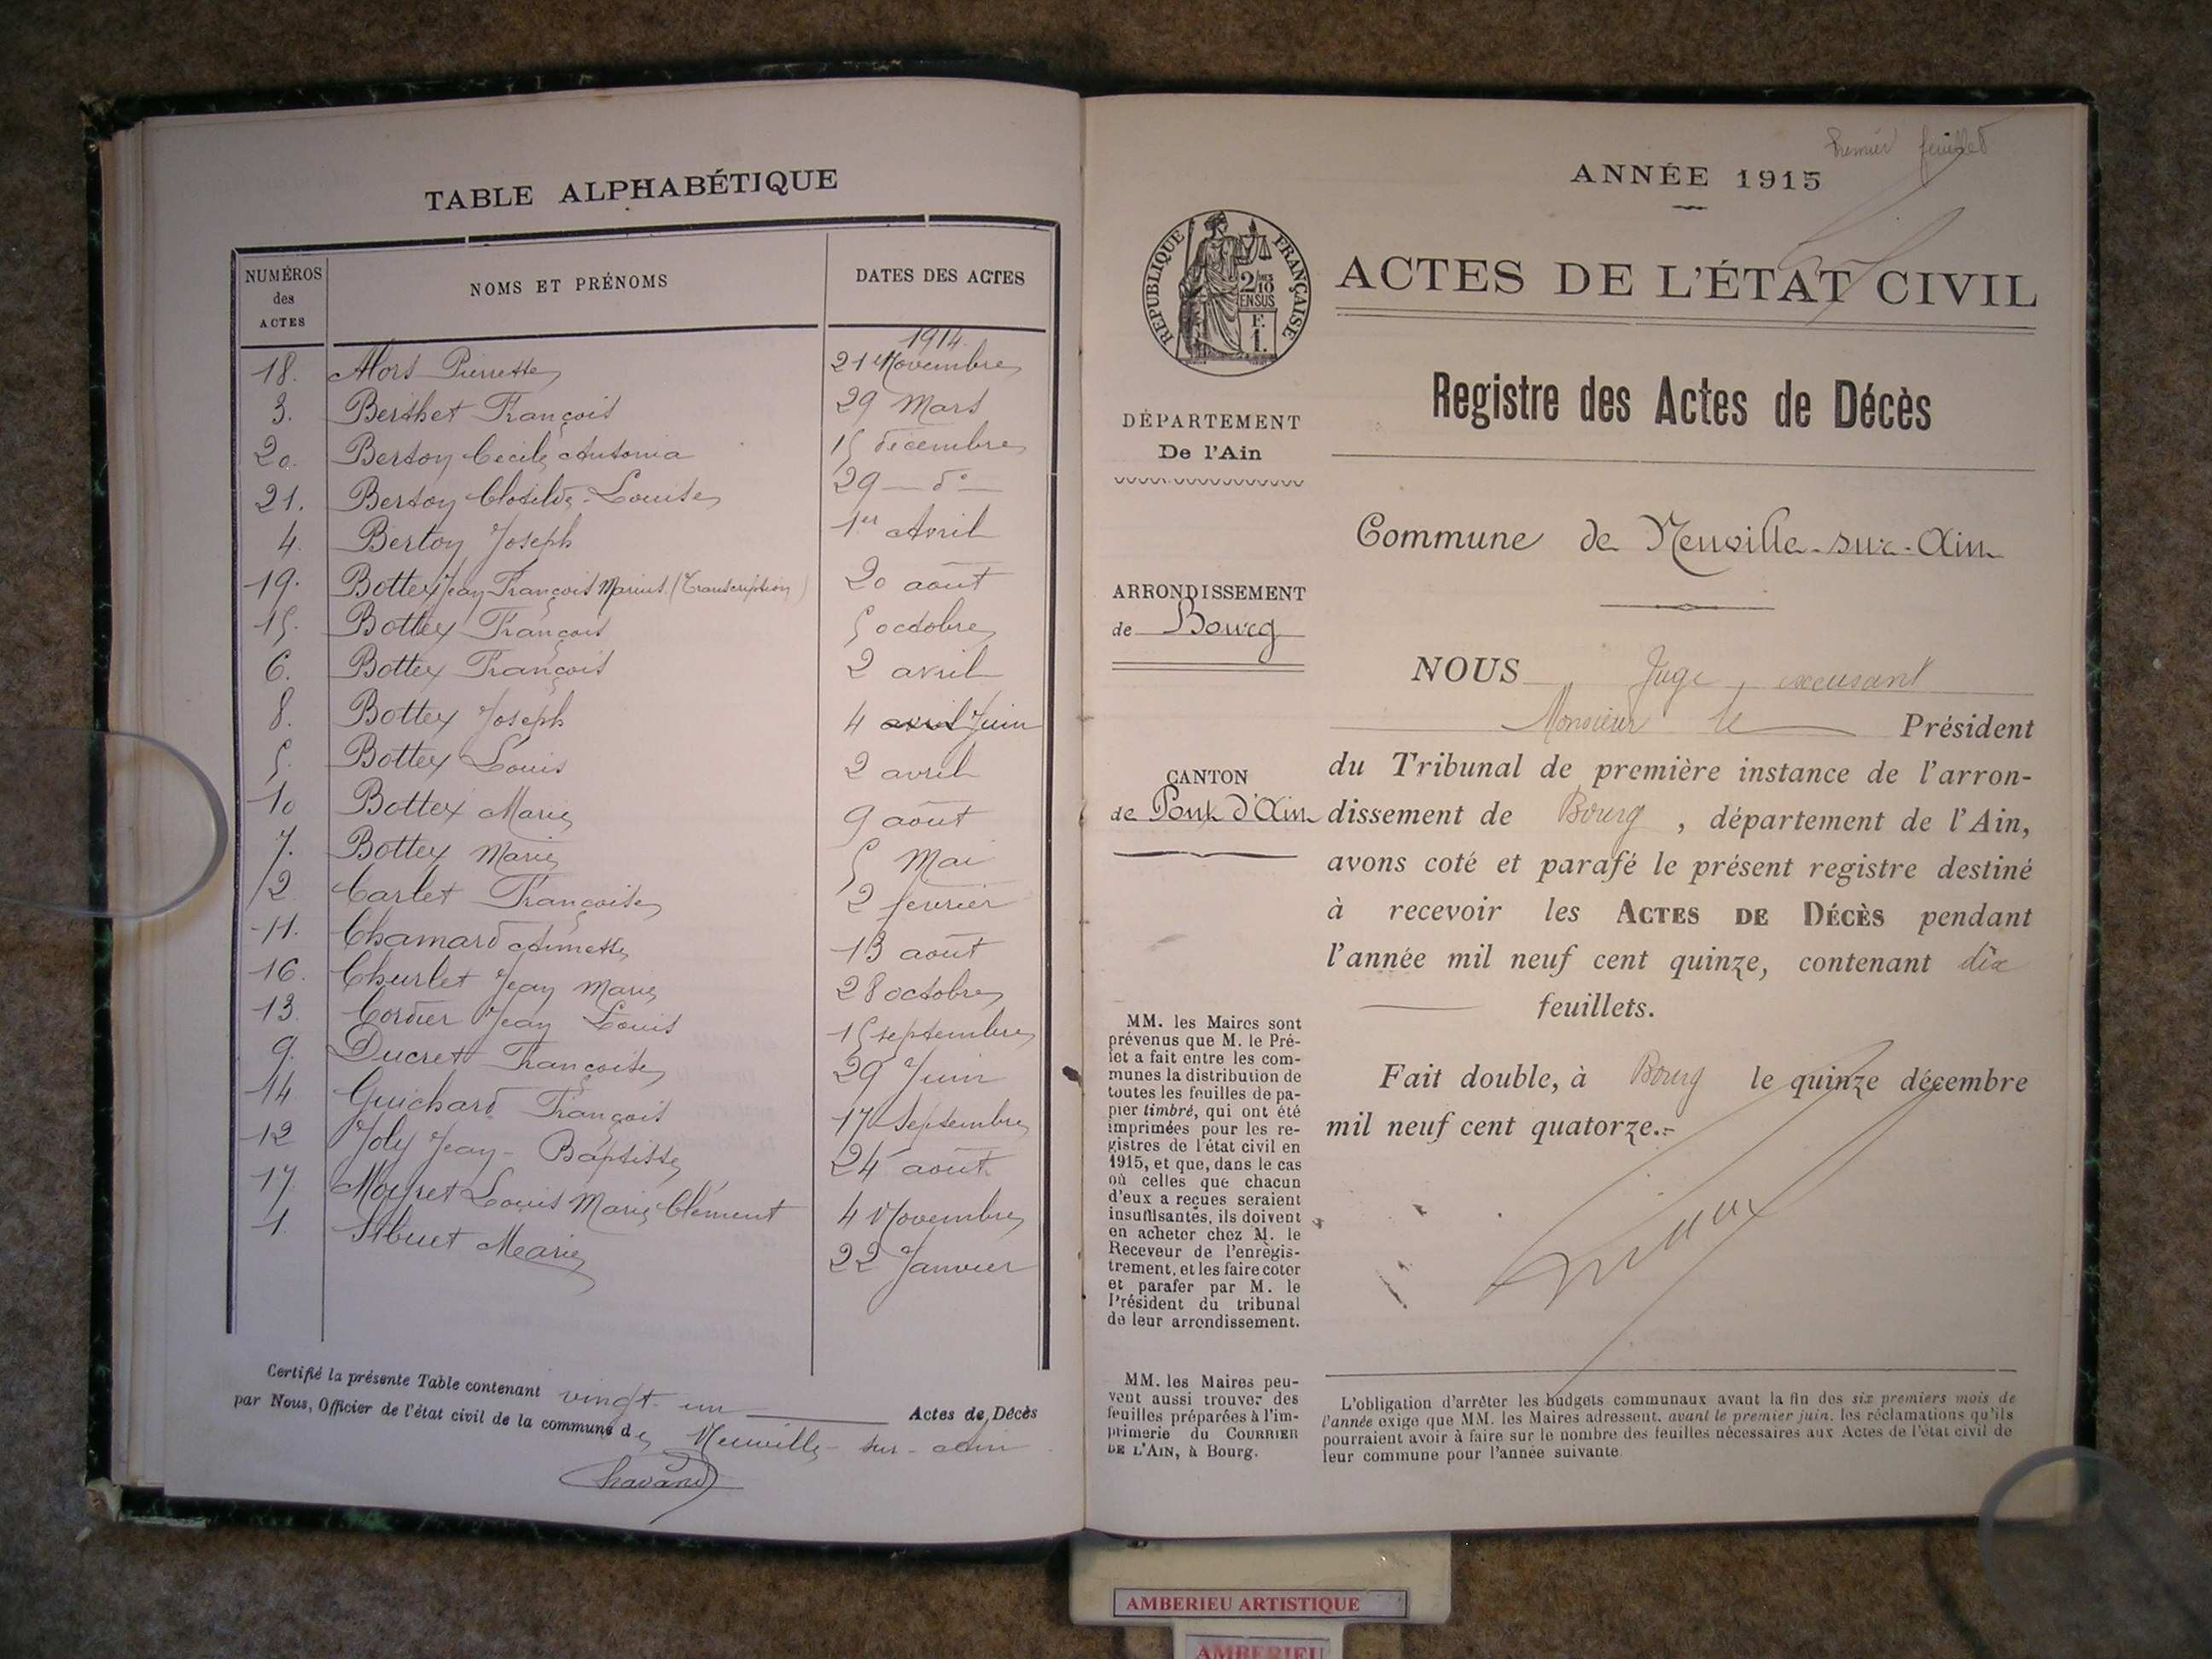 TABLE ALPHABÉTIQUE
NUMÉROS des ACTES NOMS ET PRÉNOMS DATES DES ACTES
1914.
18. Alors Pierrette 21 Novembre
3. Berthet François 29 Mars
20. Berton Cécile Antonia 15 décembre
21. Berton Clotilde-Louise 29 — do —
4. Berton Joseph 1er Avril
19. Bottex Jean François Marius (Transcription) 20 août
15. Bottex François 5 octobre
6. Bottex François 2 avril
8. Bottex Joseph 4 avril Juin
5. Bottex Louis 2 avril
10 Bottex Marie 9 août
7. Bottex Marie 5 Mai
2 Carlet Françoise 2 février
11. Chamard Aimette 13 août
16. Churlet Jean Marie 28 octobre
13. Cordier Jean Louis 15 septembre
9. Ducret Françoise 29 Juin
14 Guichard François 17 Septembre
12 Joly Jean-Baptiste 24 août
17. Moyret Louis Marie Clément 4 Novembre
1. Sibuet Marie 22 Janvier
Certifié la présente Table contenant vingt-un Actes de Décès
par Nous, Officier de l'état civil de la commune de Neuville-sur-Ain
Chavand
Premier feuillet
ANNÉE 1915
ACTES DE L'ÉTAT CIVIL
RÉPUBLIQUE FRANÇAISE
2/10
EN SUS
F.
1.
Registre des Actes de Décès
DÉPARTEMENT
De l'Ain
Commune de Neuville-sur-Ain
ARRONDISSEMENT
de Bourg
CANTON
de Pont d'Ain
NOUS Juge excusant
Monsieur le Président
du Tribunal de première instance de l'arron-
dissement de Bourg, département de l'Ain,
avons coté et parafé le présent registre destiné
à recevoir les ACTES DE DÉCÈS pendant
l'année mil neuf cent quinze, contenant dix
feuillets.
Fait double, à Bourg le quinze décembre
mil neuf cent quatorze.-
MM. les Maires sont
prévenus que M. le Pré-
fet a fait entre les com-
munes la distribution de
toutes les feuilles de pa-
pier timbré, qui ont été
imprimées pour les re-
gistres de l'état civil en
1915, et que, dans le cas
où celles que chacun
d'eux a reçues seraient
insuffisantes, ils doivent
en acheter chez M. le
Receveur de l'enregis-
trement, et les faire coter
et parafer par M. le
Président du tribunal
de leur arrondissement.
MM. les Maires peu-
vent aussi trouver des
feuilles préparées à l'im-
primerie du COURRIER
DE L'AIN, à Bourg.
L'obligation d'arrêter les budgets communaux avant la fin des six premiers mois de
l'année exige que MM. les Maires adressent, avant le premier juin, les réclamations qu'ils
pourraient avoir à faire sur le nombre des feuilles nécessaires aux Actes de l'état civil de
leur commune pour l'année suivante.
AMBERIEU ARTISTIQUE
AMBERIEU